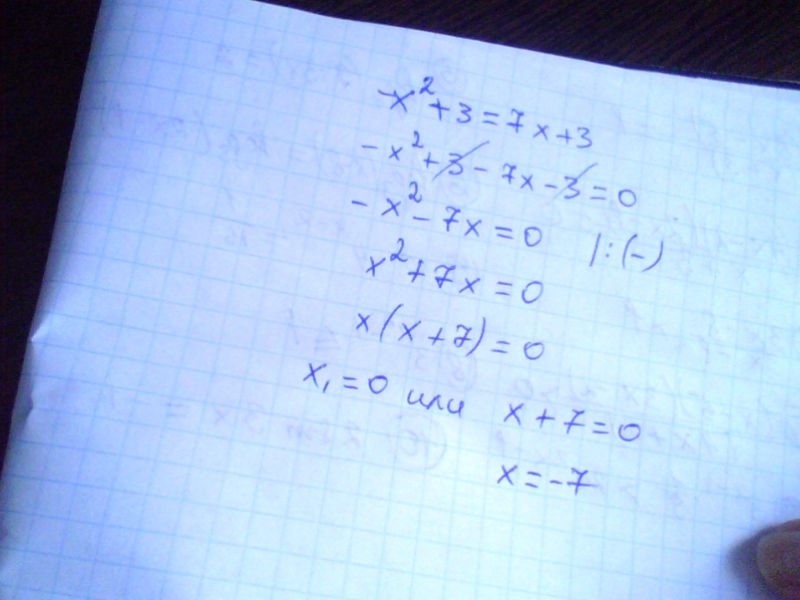 -x²+3=7x+3
-x²+3-7x-3=0
-x²-7x=0 |:(-)
x²+7x=0
x(x+7)=0
x₁=0 или x+7=0
x=-7